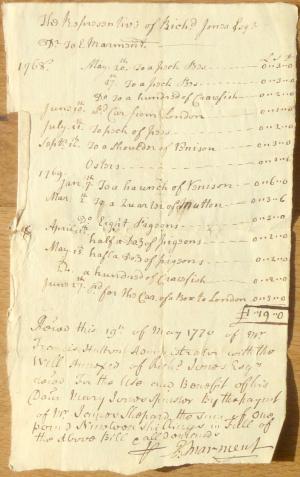 The Representatives of Richd Jones Esqr
Dr To E Marment
1768. May 20th To a peck Pes — 0-3-0
To a peck Pes — 0-3-0
Do To a hundred of Crawfish — 0-2-0
June 10th Pd Car. from London — 0-3-0
July 11th To peck of pess — 0-2-0
Septr 12th To a Shoulder of Venison — 0-3-0
Osters
1769. Jan 7th To a haunch of Venison — 0-6-0
Mar To a Quarter of Mutton — 3-6
Do Eight Pigeons
April half a Doz of pigeons — 0-2-0
May 15 half a Doz of pigeons — 0-2-0
Do a hundred of Crawfish — 0-2-0
June 27th pd for the Car. of a Box to London — 0-3-0
£1-19-0
Reced this 19th of May 1770 of Mr
Francis Hulton Administrator with the
Will Annexed of Richd Jones Esqr
for the Use and Benefit of his
Daur Mary Jones Spinster By the paymt
of Mr James Shepard, the Sum of One
pound Nineteen Shillings in Full of
the Above Bill & all demands
E Marment